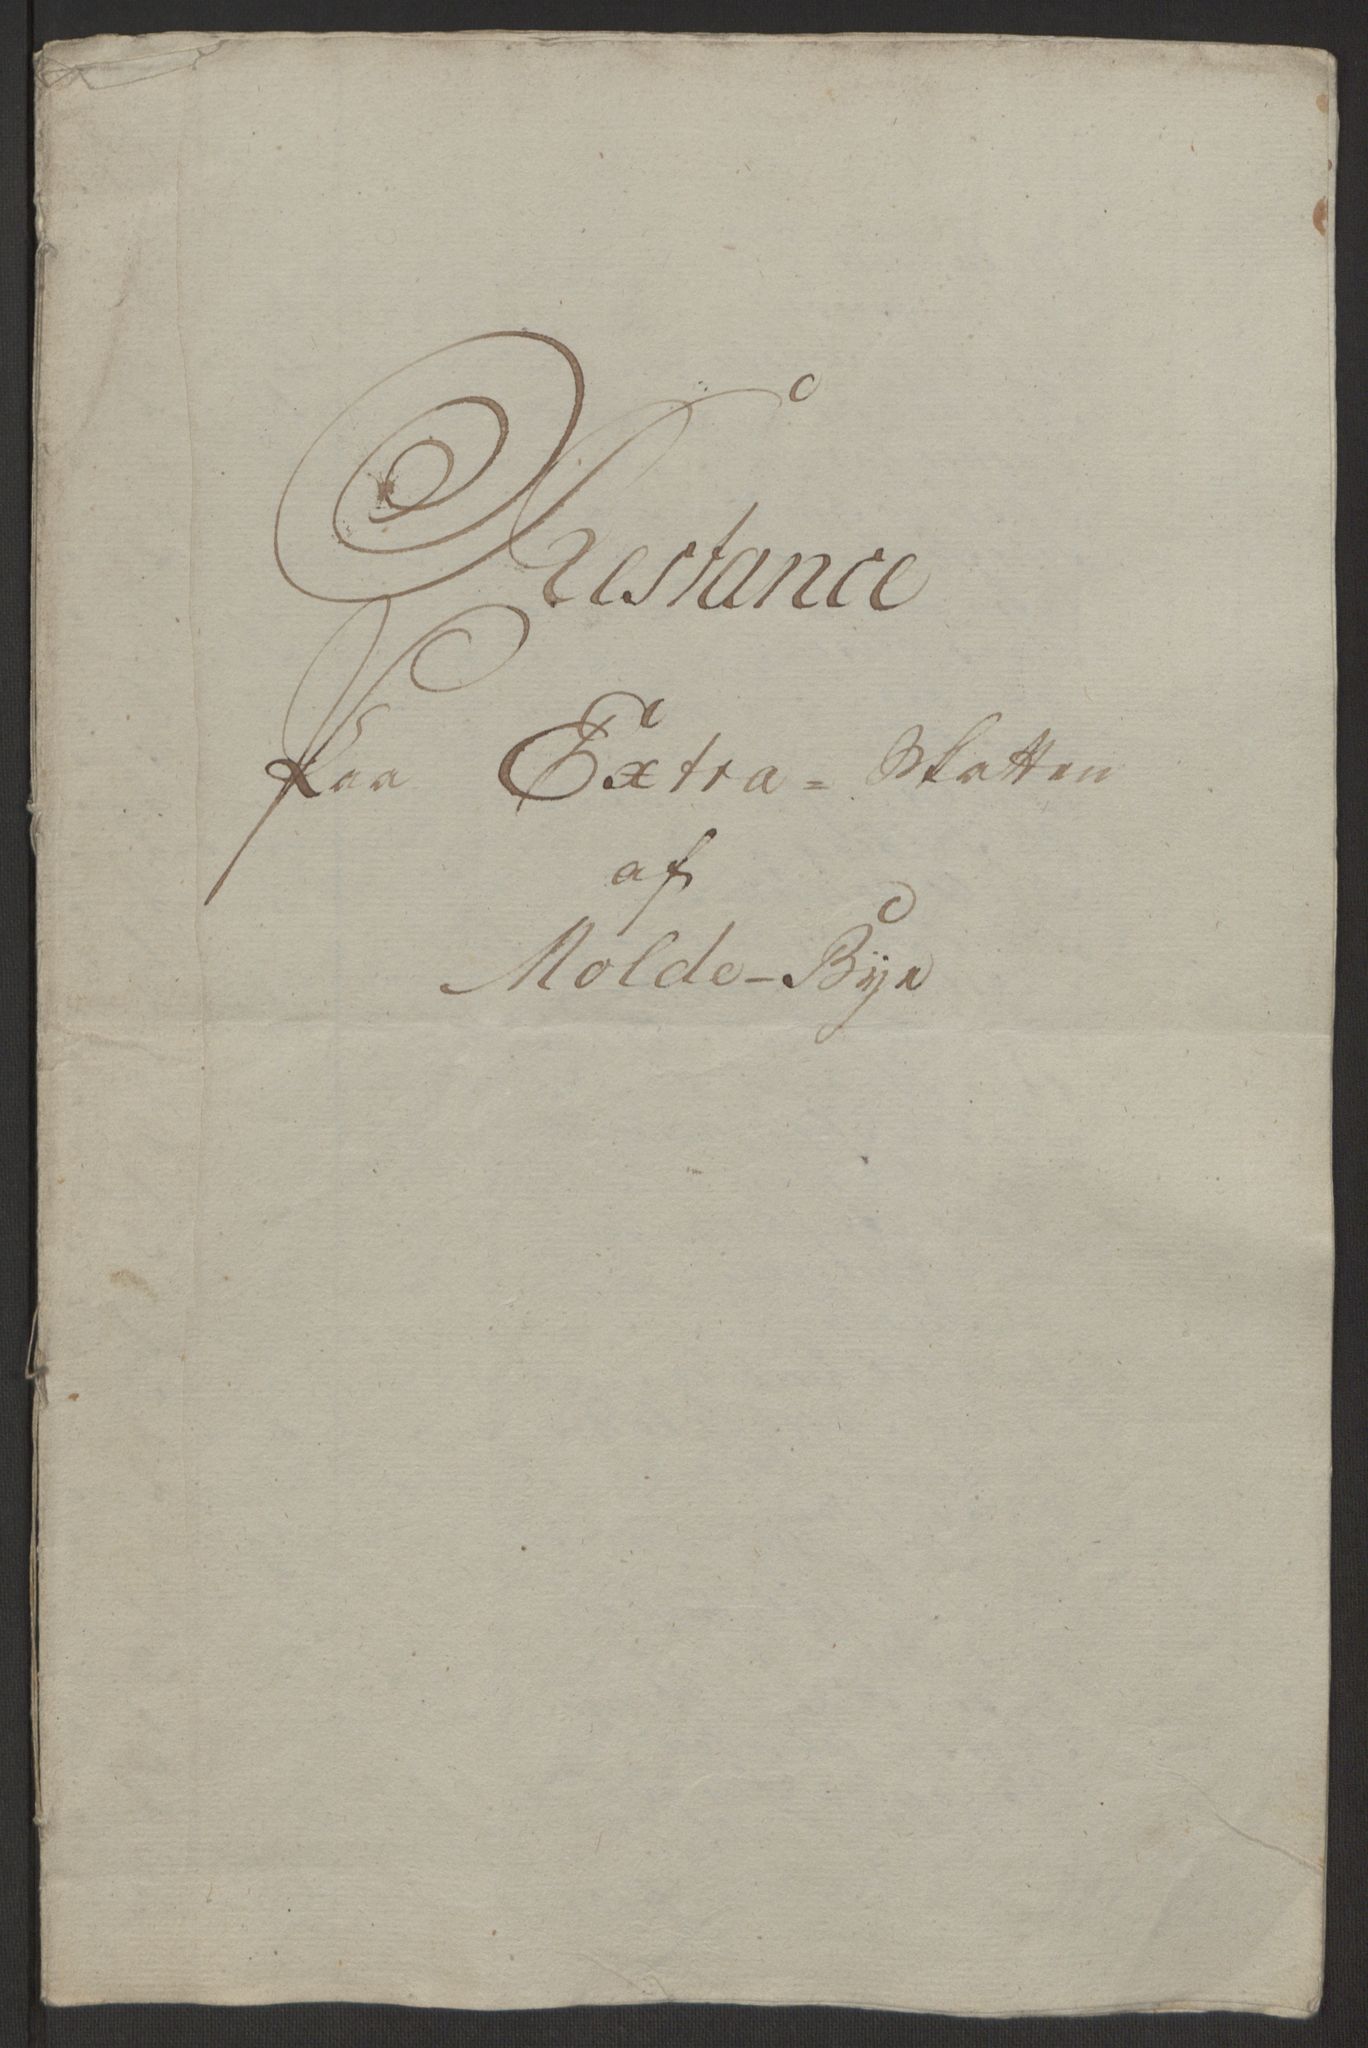 Restance
Paa Extra=Skatten
af
Molde-Bÿe